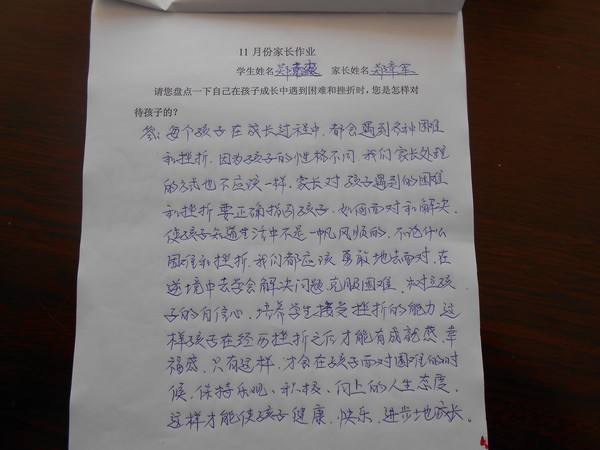 11月份家长作业
学生姓名 郑 家长姓名 郑章军
请您盘点一下自己在孩子成长中遇到困难和挫折时,您是怎样对
待孩子的?
答:每个孩子在成长过程中,都会遇到各种困难
和挫折,因为孩子的性格不同,我们家长处理
的方式也不应该一样,家长对孩子遇到的困难
和挫折要正确指引孩子,如何面对和解决,
使孩子知道生活中不是一帆风顺的,不论什么
困难和挫折,我们都应该勇敢地去面对,在
逆境中去学会解决问题,克服困难,树立孩
子的自信心,培养学生接受挫折的能力,这
样孩子在经历挫折之后才能有成就感,幸
福感,只有这样,才会在孩子面对困难的时
候,保持乐观、积极、向上的人生态度,
这样才能使孩子健康、快乐、进步地成长。